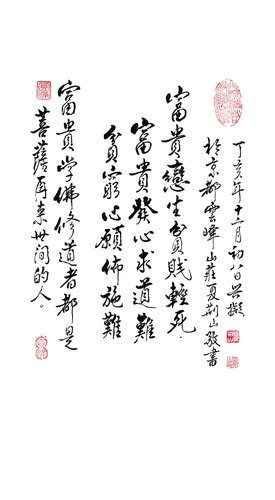 丁亥年十二月初八日擬
於京都雲嶂山莊夏荊山敬書
富貴戀生貧賤輕死
富貴發心求道難
貧窮心願佈施難
富貴學佛修道者都是
菩薩再來世間的人